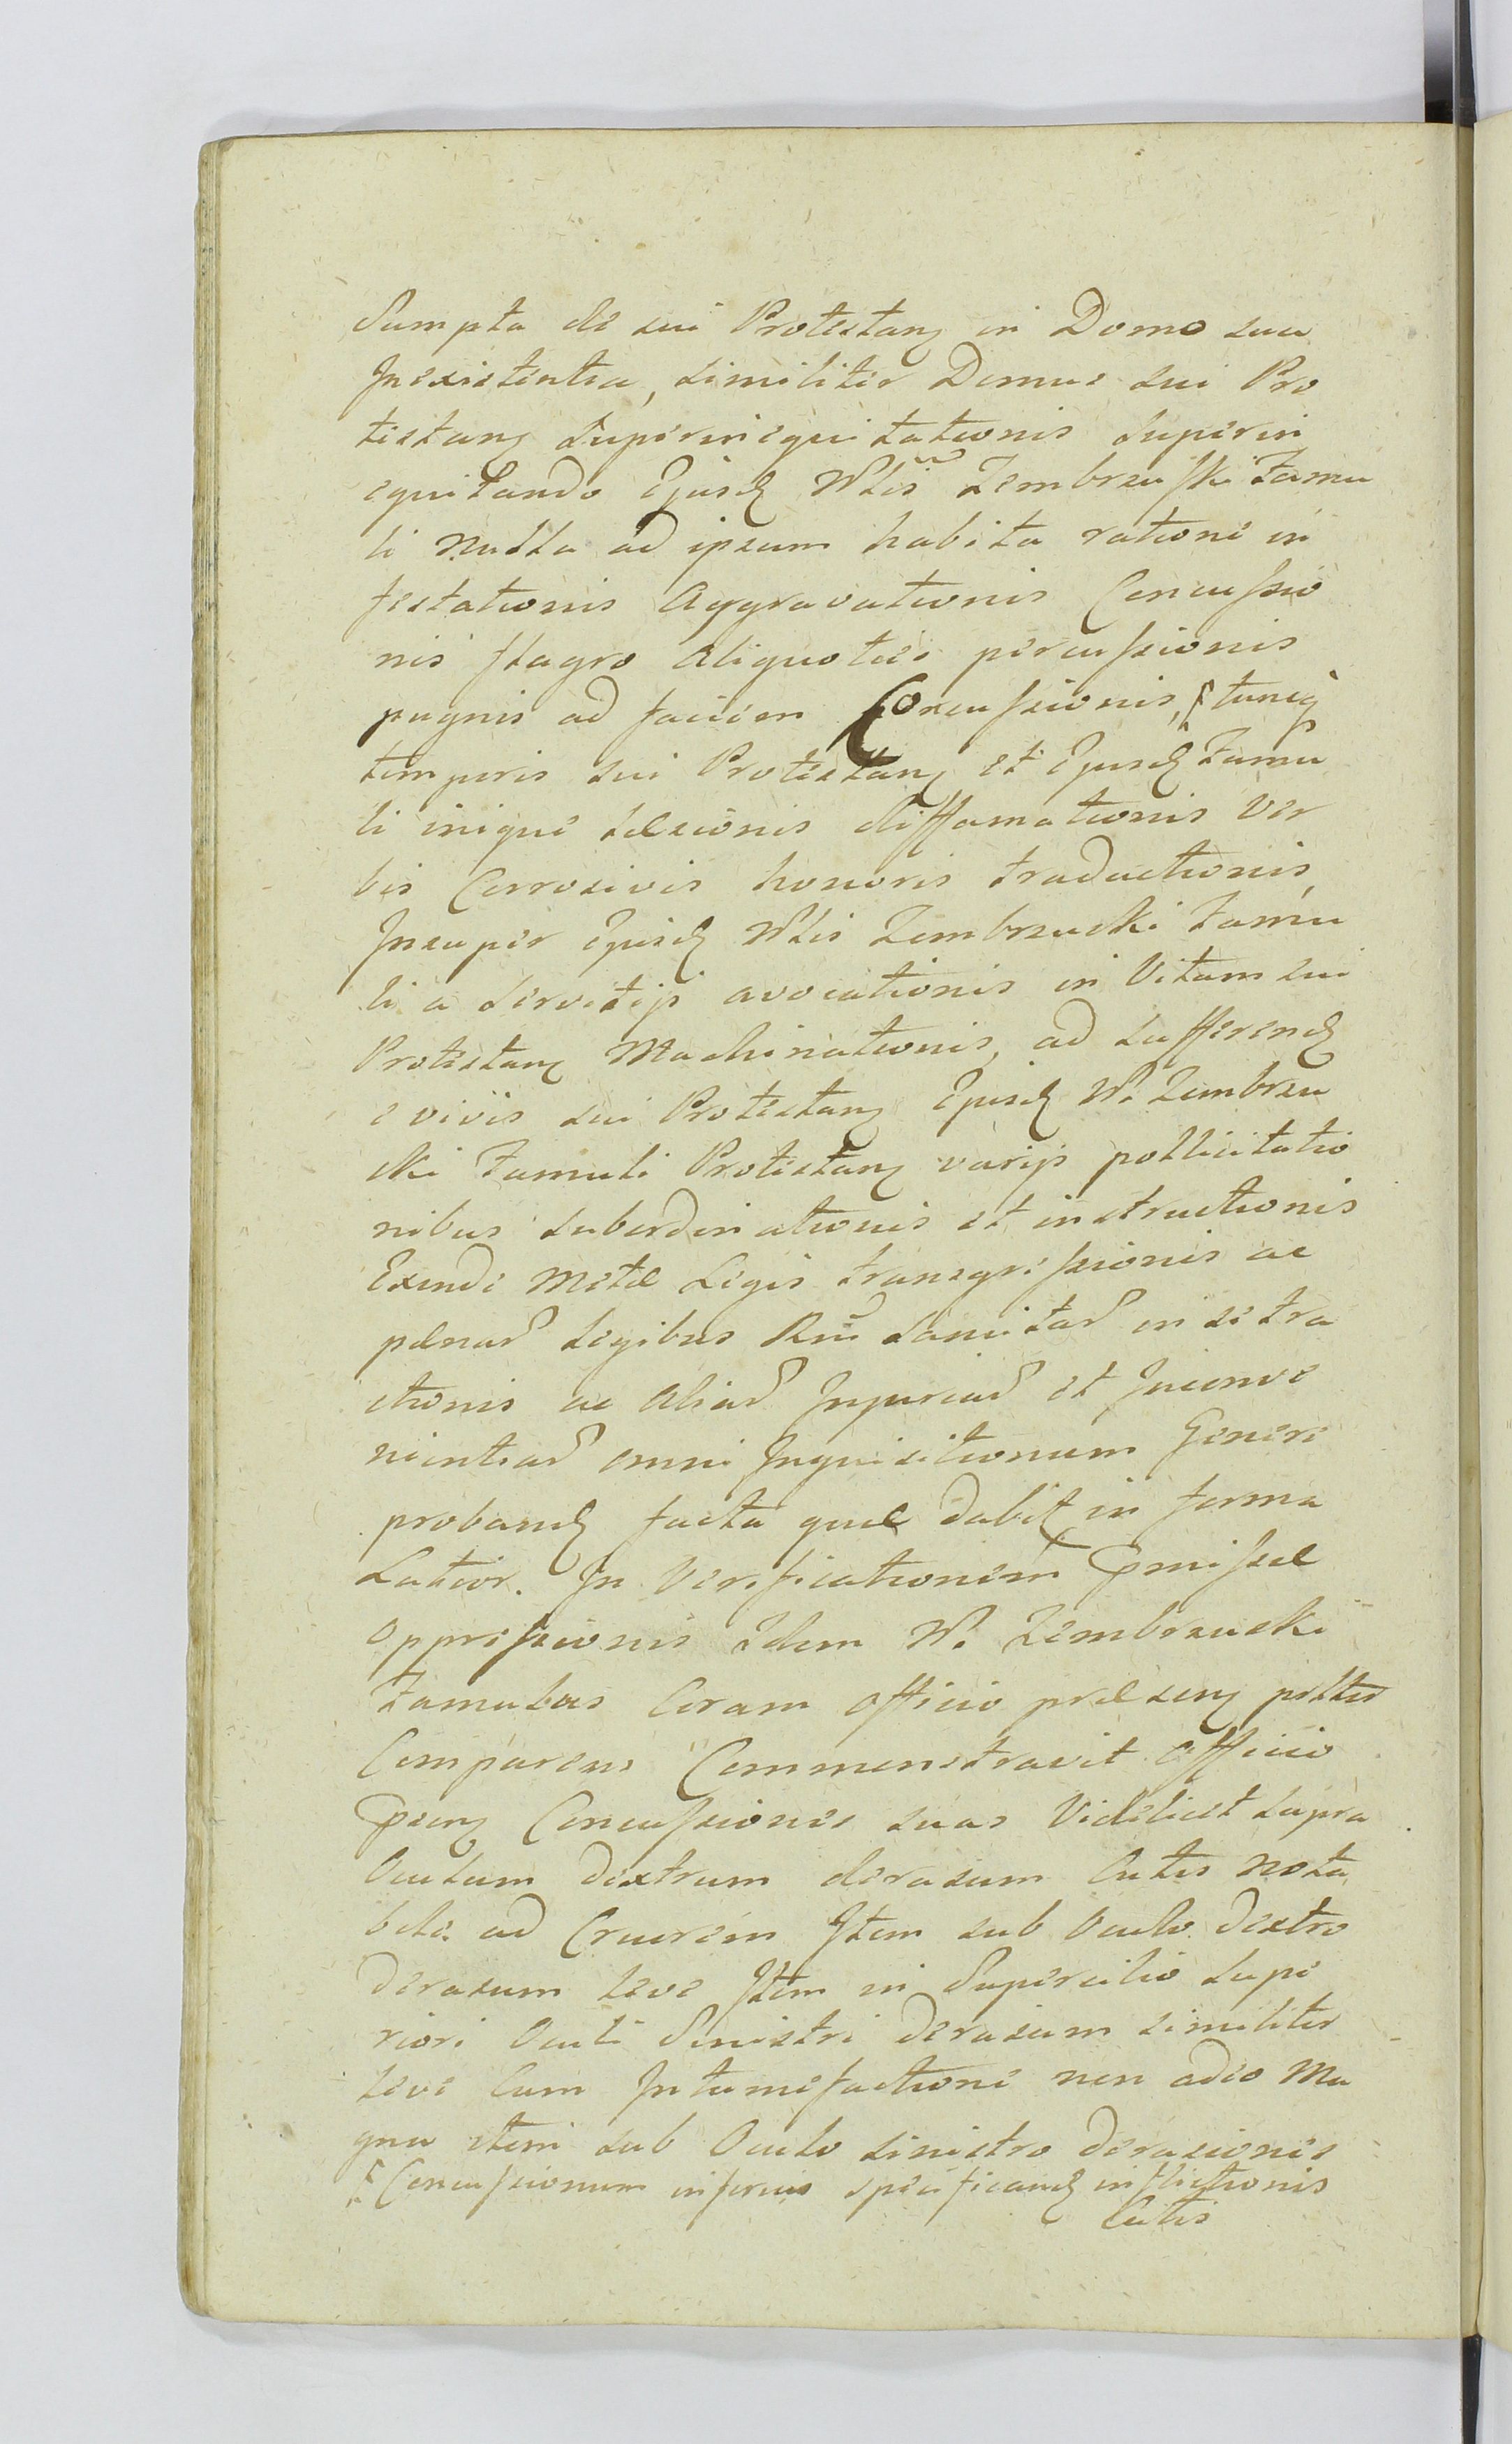 Sumpta de sui Protestan in Domo sua
Inexistentia, similiter Domus sui Pro
testan Superinequitationis superin
equitando Ejusd Wlis Zembrzuski Famu
li nulla ad ipsum habita ratione in
festationis Aggravationis Concussio
nis flagro Aliquoties percussionis
pugnis ad faciem Concussionis, tuncq
temporis sui Protestan et Ejusd Famu
li inique Læsionis diffamationis Ver
bis Corrosivis honoris traductionis,
Insuper Ejusd Wlis Zembrzuski Famu
li a Servitijs avocationis in Vitam sui
Protestan Machinationis, ad sufferend
e vivis sui Protestan Ejusd W. Zembrzu
ski Famuli Protestan varijs pollicitatio
nibus subordinationis et instructionis
Exinde Metæ Legis transgressionis ac
pænar Legibus Rni sancitar in se tra
ctionis ac Aliar Injuriar et Inconve
nientiar omni Inquisitionum Genere
proband facta quæ dabit in forma
Latior. In Verificationem Pmissæ
Oppressionis Idem W. Zembrzuski
Famulus Coram Officio præsen psltr
Comparens Commonstravit Officio
Psen Concussiones suas Videlicet supra
Oculum dextrum derasum Cutis nota
bile ad Cruorem Item sub Oculo dextro
Derasum Leve Item in Supercilio supe
riori Oculi Sinistri Derasum similiter
Leve Cum Intumefactione non adeo Ma
gna item sub Oculo sinistro Derasiones
Concussionum inferius specificand inflictionis
Cutis